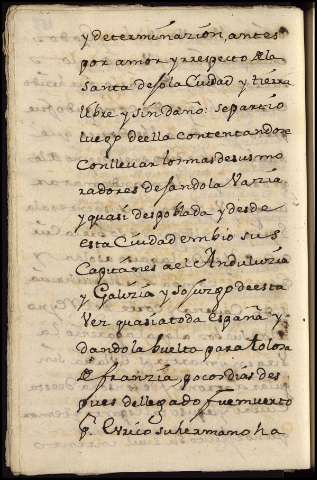 y determinazion, antes
por amor y rrespecto de la
santa deso la Ciudad y tierra
libre y sin daño: separtio
luego de ella contentandose
Con llevar lo mas de sus mo
radores dejandola Vazia,
y quasi despoblada y desde
esta Ciudad embio sus
Capitanes a el Andaluzia
y Galizia y sojuzgo de esta
Vez quasi a toda España y
dando la buelta para tolosa
de franzia, pocos dias des
pues de llegado fue muerto
p.r Eurico su hermano ha